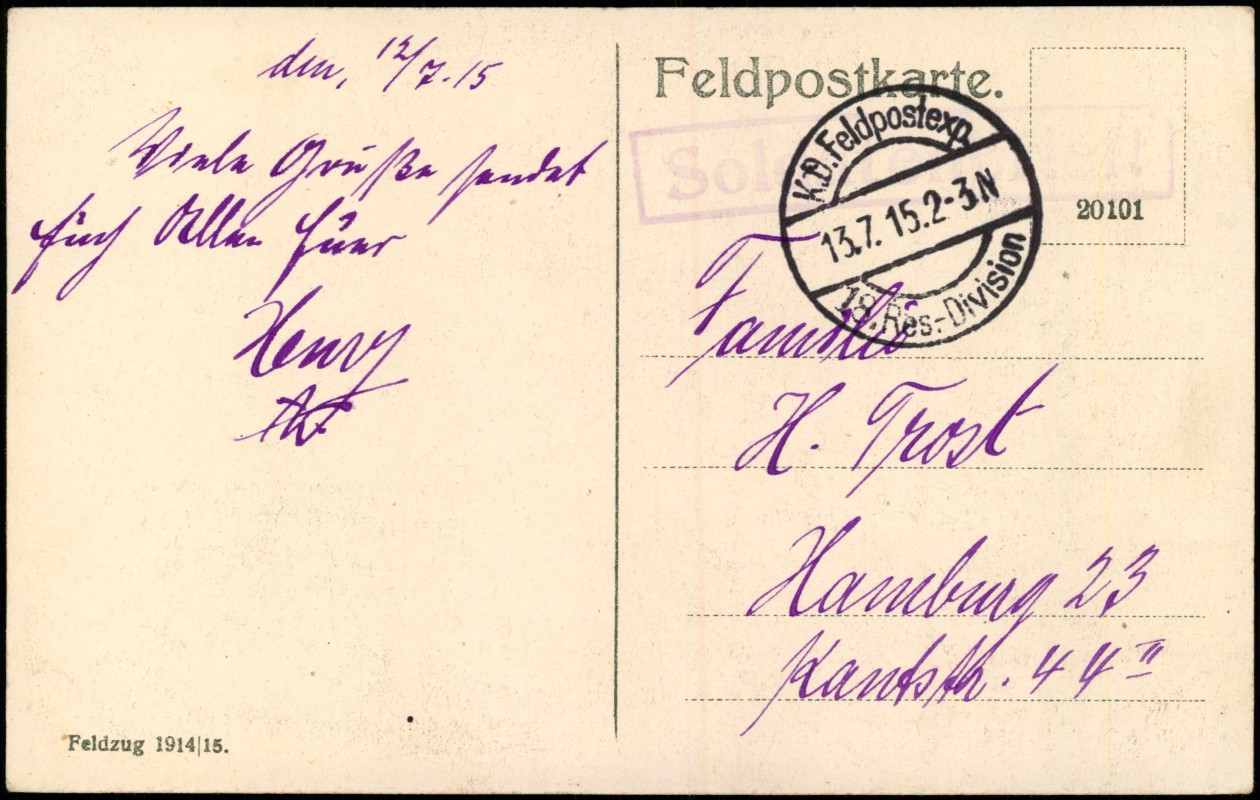 den, 12/7.15
Viele Grüße sendet
Euch Allen Euer
Henry
Feldzug 1914|15.
Feldpostkarte.
K.D.Feldpostexp.
13.7.15.2-3N
18.Res.-Division
20101
Familie
H. Trost
Hamburg 23
Kantstr. 44 II